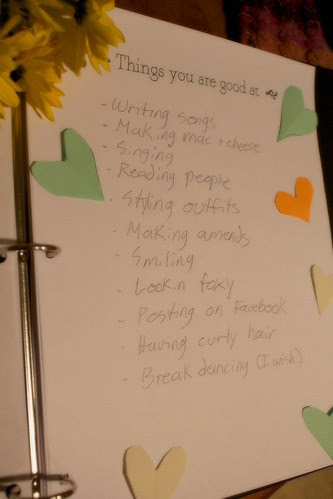 Things you are good at
- Writing songs
- Making mac + cheese
- Singing
- Reading people
- Styling outfits
- Making amends
- Smiling
- Lookin foxy
- Posting on Facebook
- Having curly hair
- Break dancing (I wish)